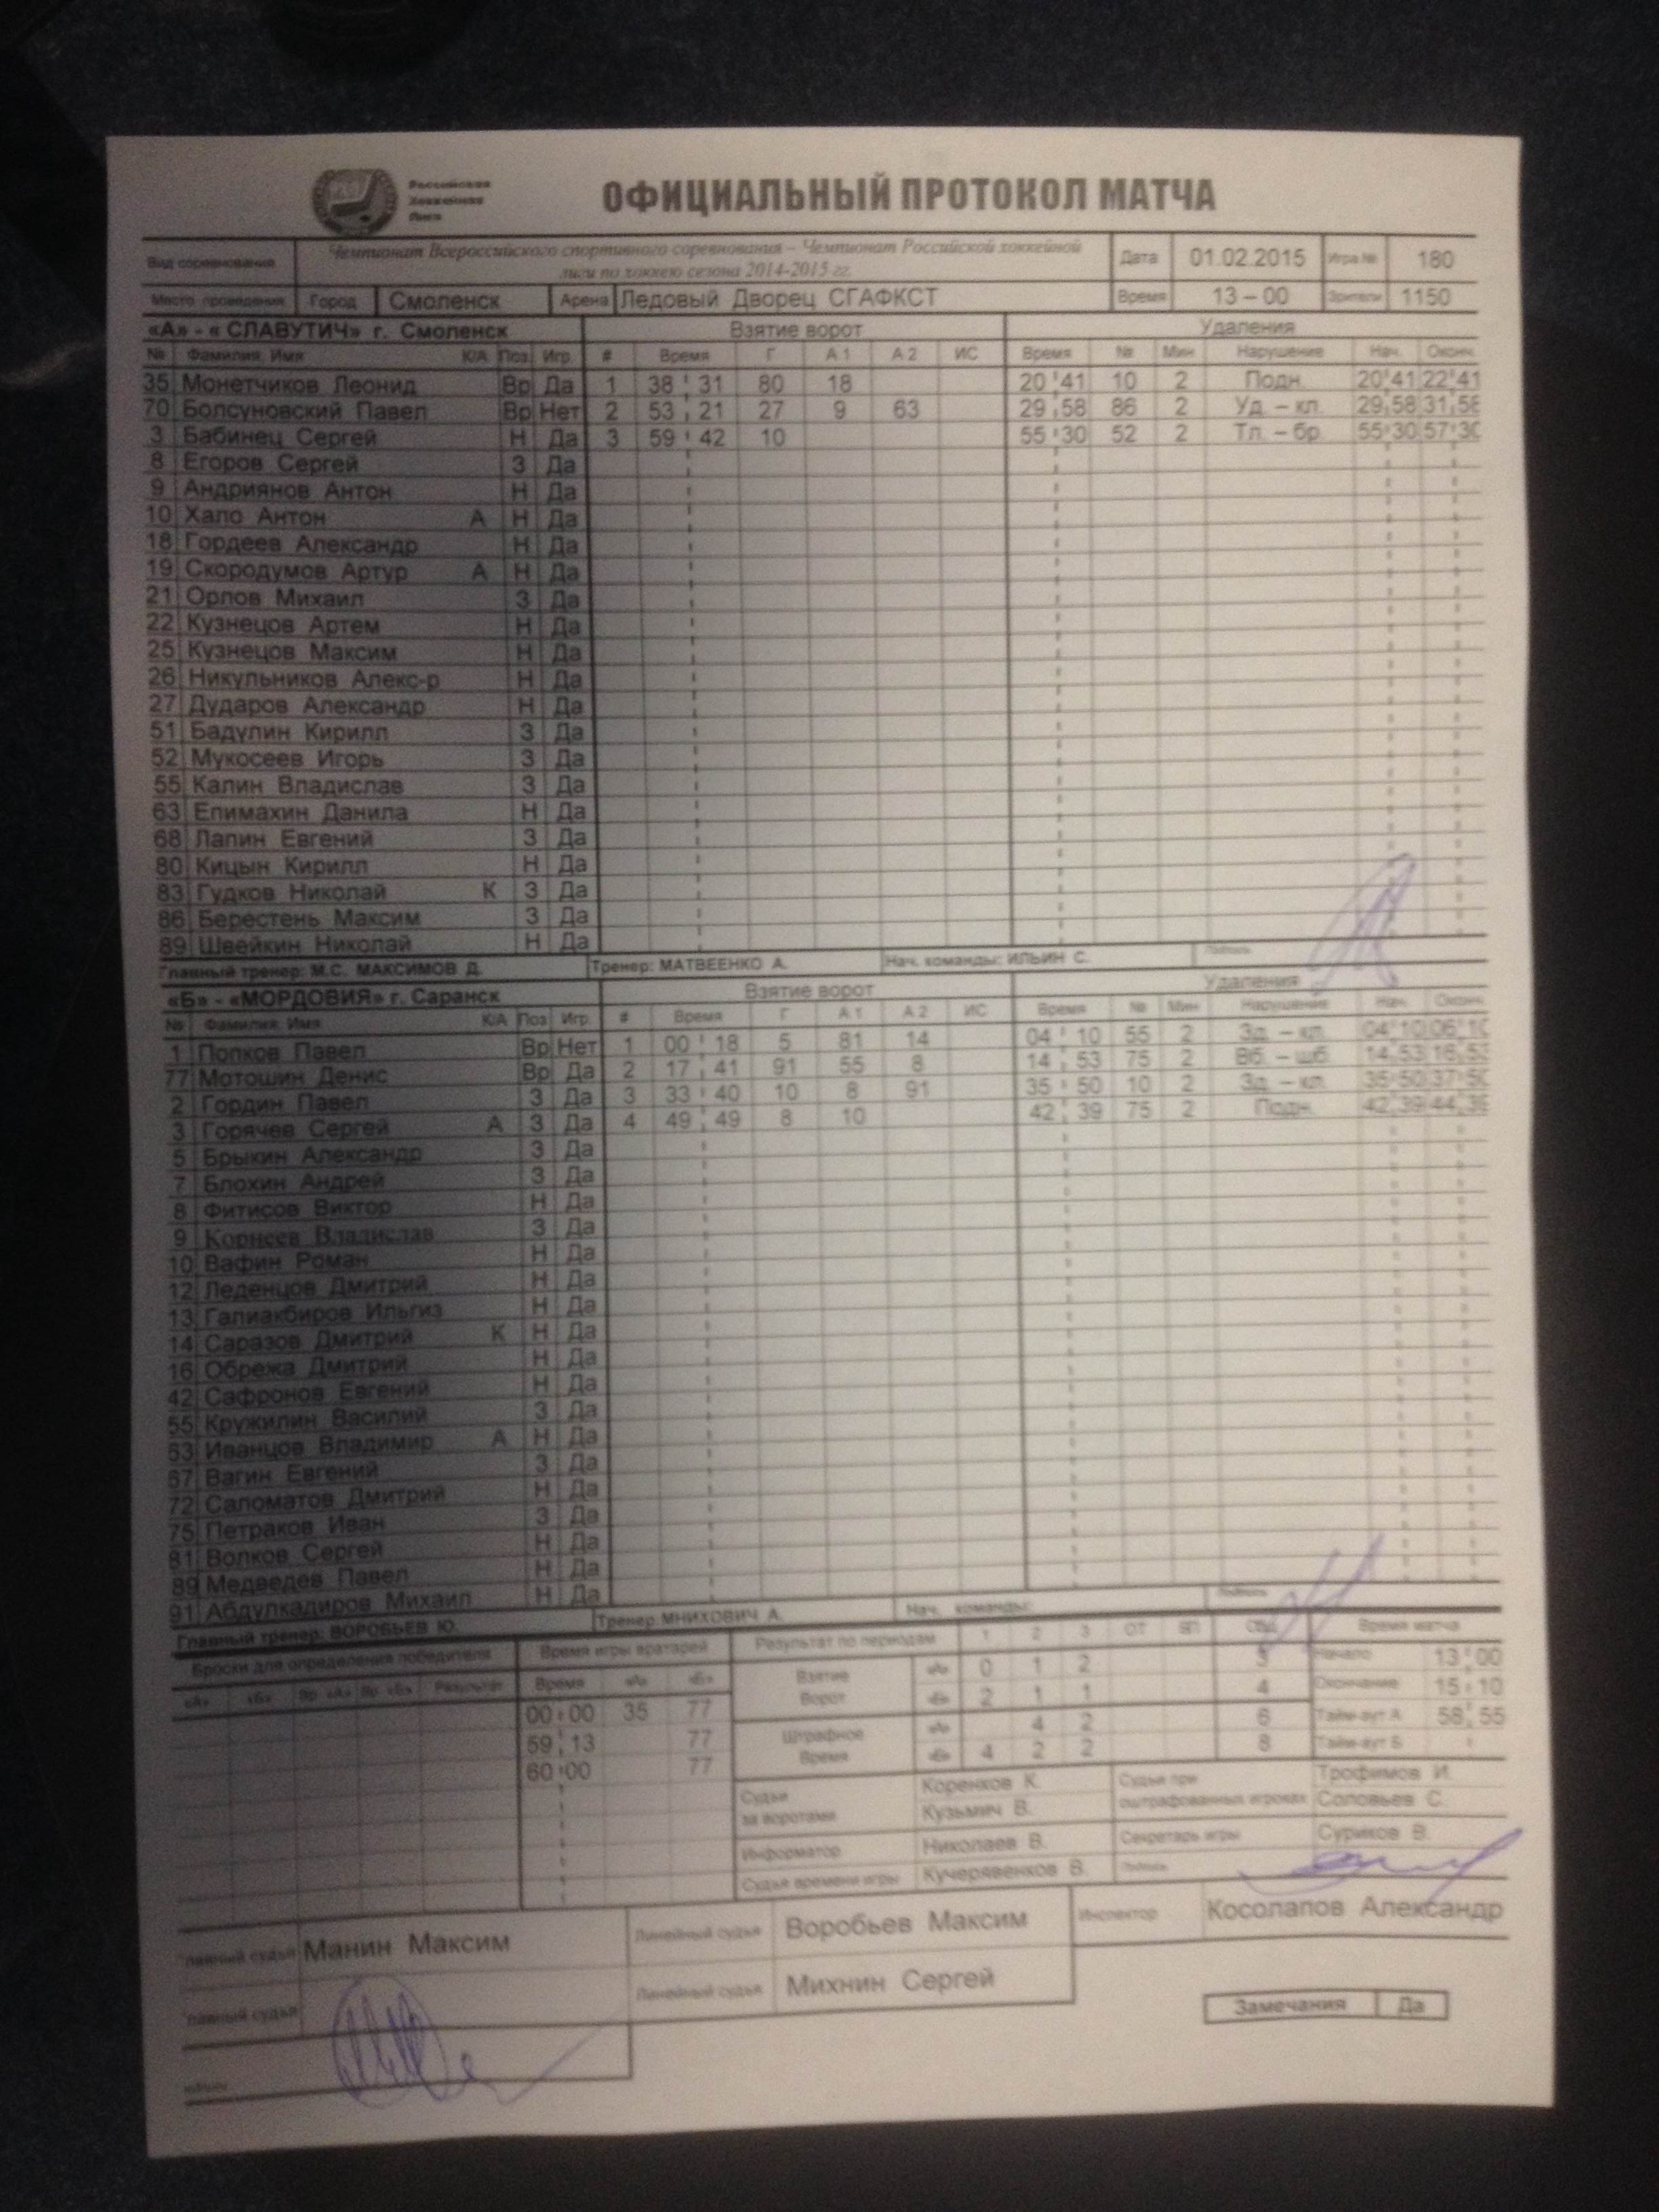 Российская
Хоккейная
Лига
ОФИЦИАЛЬНЫЙ ПРОТОКОЛ МАТЧА
Вид соревнования Чемпионат Всероссийского спортивного соревнования – Чемпионат Российской хоккейной лиги по хоккею сезона 2014-2015 гг. Дата 01.02.2015 Игра № 180
Место проведения Город Смоленск Арена Ледовый Дворец СГАФКСТ Время 13 – 00 Зрители 1150
«А» - « СЛАВУТИЧ» г. Смоленск Взятие ворот Удаления
№ Фамилия, Имя К/А Поз Игр. # Время Г А 1 А 2 ИС Время № Мин Нарушение Нач. Оконч.
35 Монетчиков Леонид Вр Да 1 38 31 80 18 20 41 10 2 Подн. 20 41 22 41
70 Болсуновский Павел Вр Нет 2 53 21 27 9 63 29 58 86 2 Уд. – кл. 29 58 31 58
3 Бабинец Сергей Н Да 3 59 42 10 55 30 52 2 Тл. – бр. 55 30 57 30
8 Егоров Сергей З Да
9 Андриянов Антон Н Да
10 Хало Антон А Н Да
18 Гордеев Александр Н Да
19 Скородумов Артур А Н Да
21 Орлов Михаил З Да
22 Кузнецов Артем Н Да
25 Кузнецов Максим Н Да
26 Никульников Алекс-р Н Да
27 Дударов Александр Н Да
51 Бадулин Кирилл З Да
52 Мукосеев Игорь З Да
55 Калин Владислав З Да
63 Епимахин Данила Н Да
68 Лапин Евгений З Да
80 Кицын Кирилл Н Да
83 Гудков Николай К З Да
86 Берестень Максим З Да
89 Швейкин Николай Н Да
Главный тренер: М.С. МАКСИМОВ Д. Тренер: МАТВЕЕНКО А. Нач. команды: ИЛЬИН С. Подпись
«Б» - «МОРДОВИЯ» г. Саранск Взятие ворот Удаления
№ Фамилия Имя К/А Поз Игр. # Время Г А 1 А 2 ИС Время № Мин Нарушение Нач. Оконч.
1 Попков Павел Вр Нет 1 00 18 5 81 14 04 10 55 2 Зд. – кл. 04 10 06 10
77 Мотошин Денис Вр Да 2 17 41 91 55 8 14 53 75 2 Вб. – шб. 14 53 16 53
2 Гордин Павел З Да 3 33 40 10 8 91 35 50 10 2 Зд. – кл. 35 50 37 50
3 Горячев Сергей А З Да 4 49 49 8 10 42 39 75 2 Подн. 42 39 44 39
5 Брыкин Александр З Да
7 Блохин Андрей З Да
8 Фитисов Виктор Н Да
9 Корнеев Владислав З Да
10 Вафин Роман Н Да
12 Леденцов Дмитрий Н Да
13 Галиакбиров Ильгиз Н Да
14 Саразов Дмитрий К Н Да
16 Обрежа Дмитрий Н Да
42 Сафронов Евгений Н Да
55 Кружилин Василий З Да
63 Иванцов Владимир А Н Да
67 Вагин Евгений З Да
72 Саломатов Дмитрий Н Да
75 Петраков Иван З Да
81 Волков Сергей Н Да
89 Медведев Павел Н Да
91 Абдулкадиров Михаил Н Да
Главный тренер: ВОРОБЬЕВ Ю. Тренер МНИХОВИЧ А. Нач. команды: Подпись
Броски для определения победителя Время игры вратарей Результат по периодам 1 2 3 ОТ ВП Общ Время матча
«А» «Б» Вр. «А» Вр. «Б» Результат Время «А» «Б» Взятие Ворот «А» 0 1 2 3 Начало 13 00
00 00 35 77 «Б» 2 1 1 4 Окончание 15 10
59 13 77 Штрафное Время «А» 4 2 6 Тайм-аут А 58 55
60 00 77 «Б» 4 2 2 8 Тайм-аут Б
Судьи за воротами Коренков К. Кузьмич В. Судьи при оштрафованных игроках Трофимов И. Соловьев С.
Информатор Николаев В. Секретарь игры Суриков В.
Судья времени игры Кучерявенков В. Подпись
Главный судья Манин Максим Линейный судья Воробьев Максим Инспектор Косолапов Александр
Главный судья Линейный судья Михнин Сергей
Замечания Да